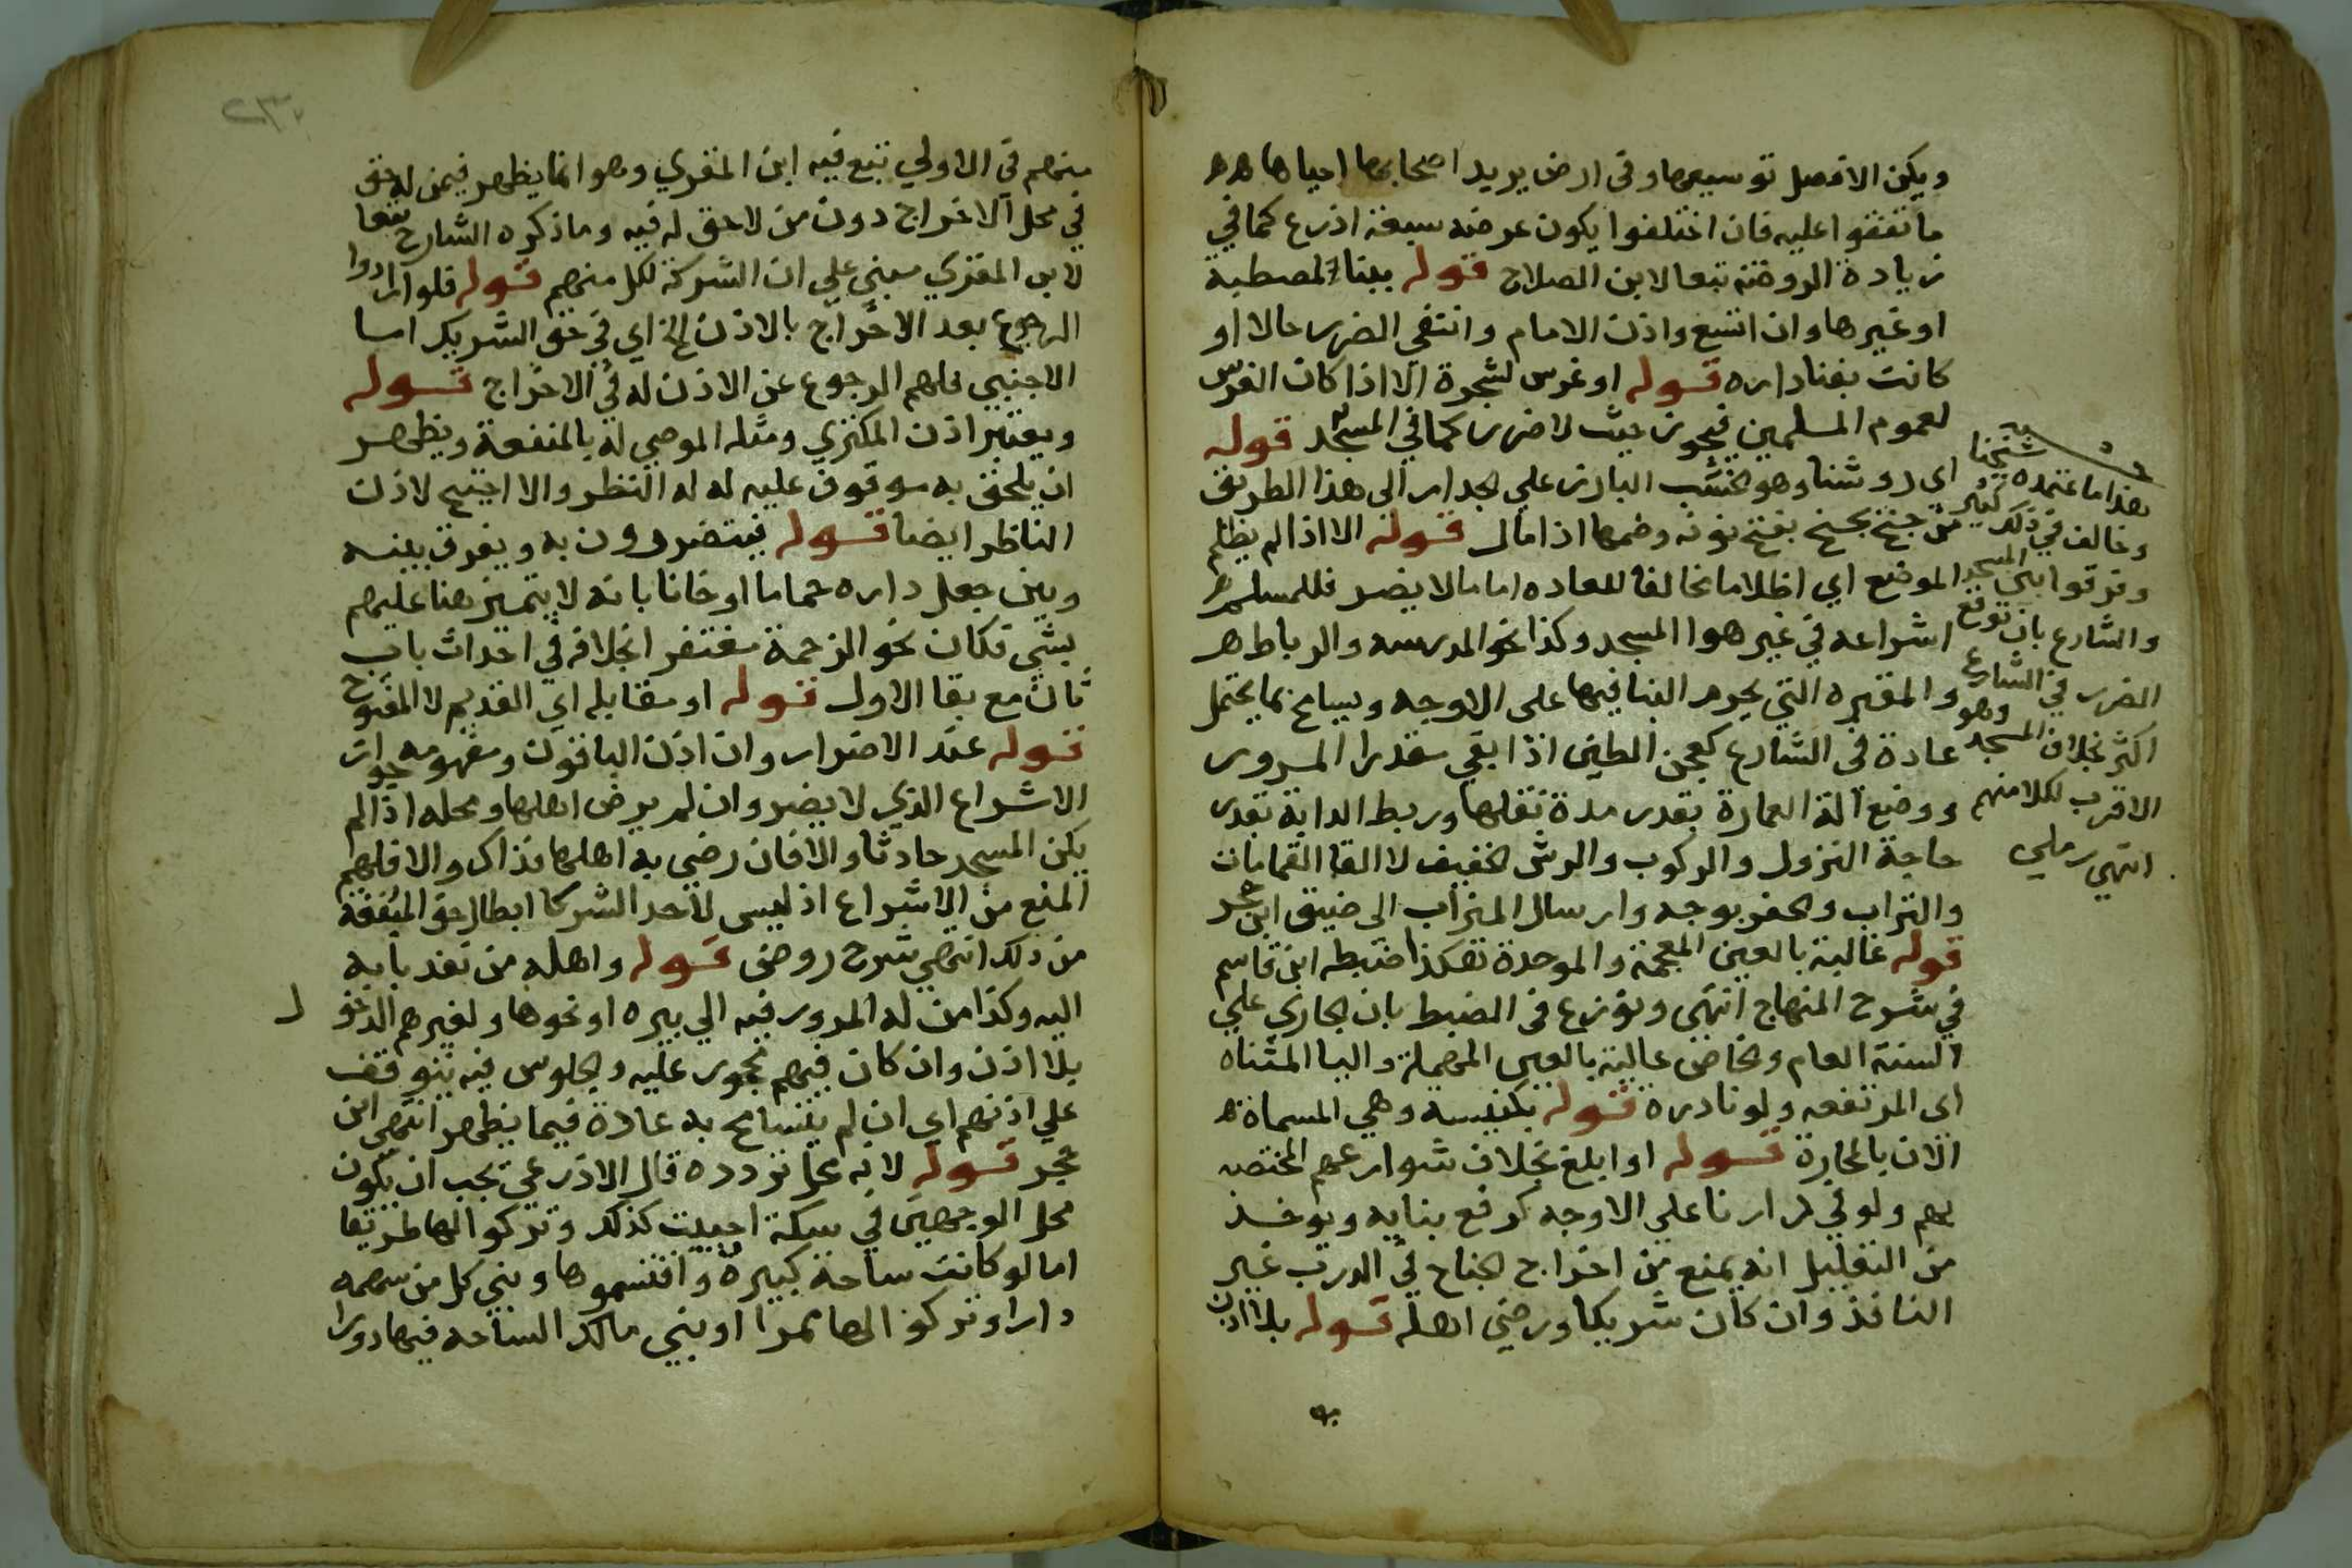 ويكن الافضل توسيعها وفى ارض يريد اصحابها احياها هه
ما تفقوا عليه فان اختلفوا يكون عرضه سبعة اذرع كما في
زيادة الروضة تبعا لابن الصلاح قوله ببناء لمصطبة
او غيرها وان اتسع واذن الامام وانتفى الضرر حالا او
كانت بفنا داره قوله او غرس لشجرة الا اذا كان الغرس
لعموم المسلمين فيجوز حيث لا ضرر كما في المسجد قوله
اى روشنا وهو الخشب البارز على الجدار الى هذا الطريق
من جنح يجنح بفتح نونه وضمها اذا مال قوله الا اذا لم يظلم
الموضع اي اظلاما مخالفا للعاده اما ما لا يضر فللمسلم
اشراعه في غير هوا المسجد وكذا نحو المدرسه والرباط ه
والمقبره التي يحرم البنا فيها على الاوجه ويسامح بما يحتمل
عادة فى الشارع كعجن الطين اذا بقي مقدار المرور
ووضع آلة العمارة بقدر مدة نقلها وربط الدابة بقدر
حاجة النزول والركوب والرش الخفيف لا القا القمامات
والتراب والحفر بوجه وارسال الميزاب الى ضيق ابن حجر
قوله غالبة بالغين المعجمة والموحدة هكذا ضبطه ابن قاسم
في شرح المنهاج انتهى ونوزع فى الضبط بان الجاري علي
السنة العام والخاص عالية بالعين المهملة واليا المثناه
اى المرتفعه ولو نادرة قوله بكنيسه وهي المسماة ه
الان بالحارة قوله او ابلغ بخلاف شوارعهم المختصه
بهم ولو في دارنا على الاوجه كرفع بنايه ويوخذ
من التعليل انه يمنع من اخراج الجناح في الدرب غير
النافذ وان كان شريكا ورضى اهله قوله بلا اذن
هذا ما اعتمده شيخنا
وخالف في ذلك كثير
وفرقوا بين المسجد
والشارع بان توقع
الضرر في الشارع
اكثر بخلاف المسجد وهو
الاقرب لكلامهم
انتهى رملي
منهم في الاولي تبع فيه ابن المقري وهو انما يظهر فيمن له حق
في محل الاخراج دون من لا حق له فيه وما ذكره الشارح تبعا
لابن المقري مبني علي ان الشركة لكل منهم قوله فلو ارادوا
الرجوع بعد الاخراج بالاذن الخ اي في حق الشريك اما
الاجنبي فلهم الرجوع عن الاذن له في الاخراج قوله
ويعتبر اذن المكتري ومثله الموصي له بالمنفعة ويظهر
ان يلحق به موقوف عليه له له النظر والا احتيج لاذن
الناظر ايضا قوله فيتضررون به ويفرق بينه
وبين جعل داره حماما او خانا بانه لا يتميز هنا عليهم
بشي فكان نحو الزحمة مغتفر بخلافه في احداث باب
ثان مع بقا الاول قوله او مقابله اي القديم لا المفتوح
قوله عند الاضرار وان اذن الباقون ومفهومه جواز
الاشراع الذي لا يضر وان لم يرض اهلها ومحله اذا لم
يكن المسجد حادثا والا فان رضي به اهلها فذاك والا فلهم
المنع من الاشراع اذ ليس لاحد الشركا ابطال حق البقية
من ذلك انتهي شرح روض قوله واهله من نفذ بابه
اليه وكذا من له المرور فيه الي بيره او نحوها ولغيرهم الدخول
بلا اذن وان كان فيهم محجور عليه والجلوس فيه يتوقف
علي اذنهم اي ان لم يتسامح به عادة فيما يظهر انتهي ابن
حجر قوله لانه محل تردده قال الاذرعي يجب ان يكون
محل الوجهين في سكة احييت كذلك وتركوا لها طريقا
اما لو كانت ساحة كبيرة واقتسموها وبني كل من سهمه
دارا وتركوا لها ممرا او بني مالك الساحه فيها دورا